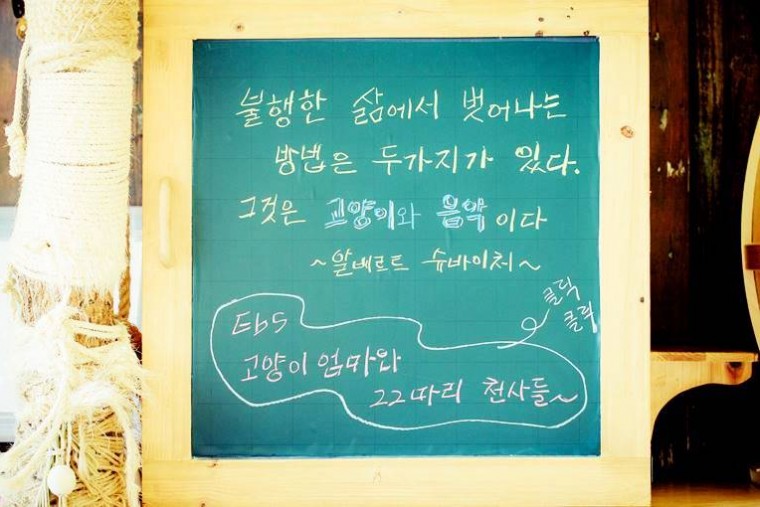 불행한 삶에서 벗어나는
방법은 두가지가 있다.
그것은 고양이와 음악이다
~알베르트 슈바이처~
클릭
클릭
EbS
고양이 엄마와
22마리 천사들~